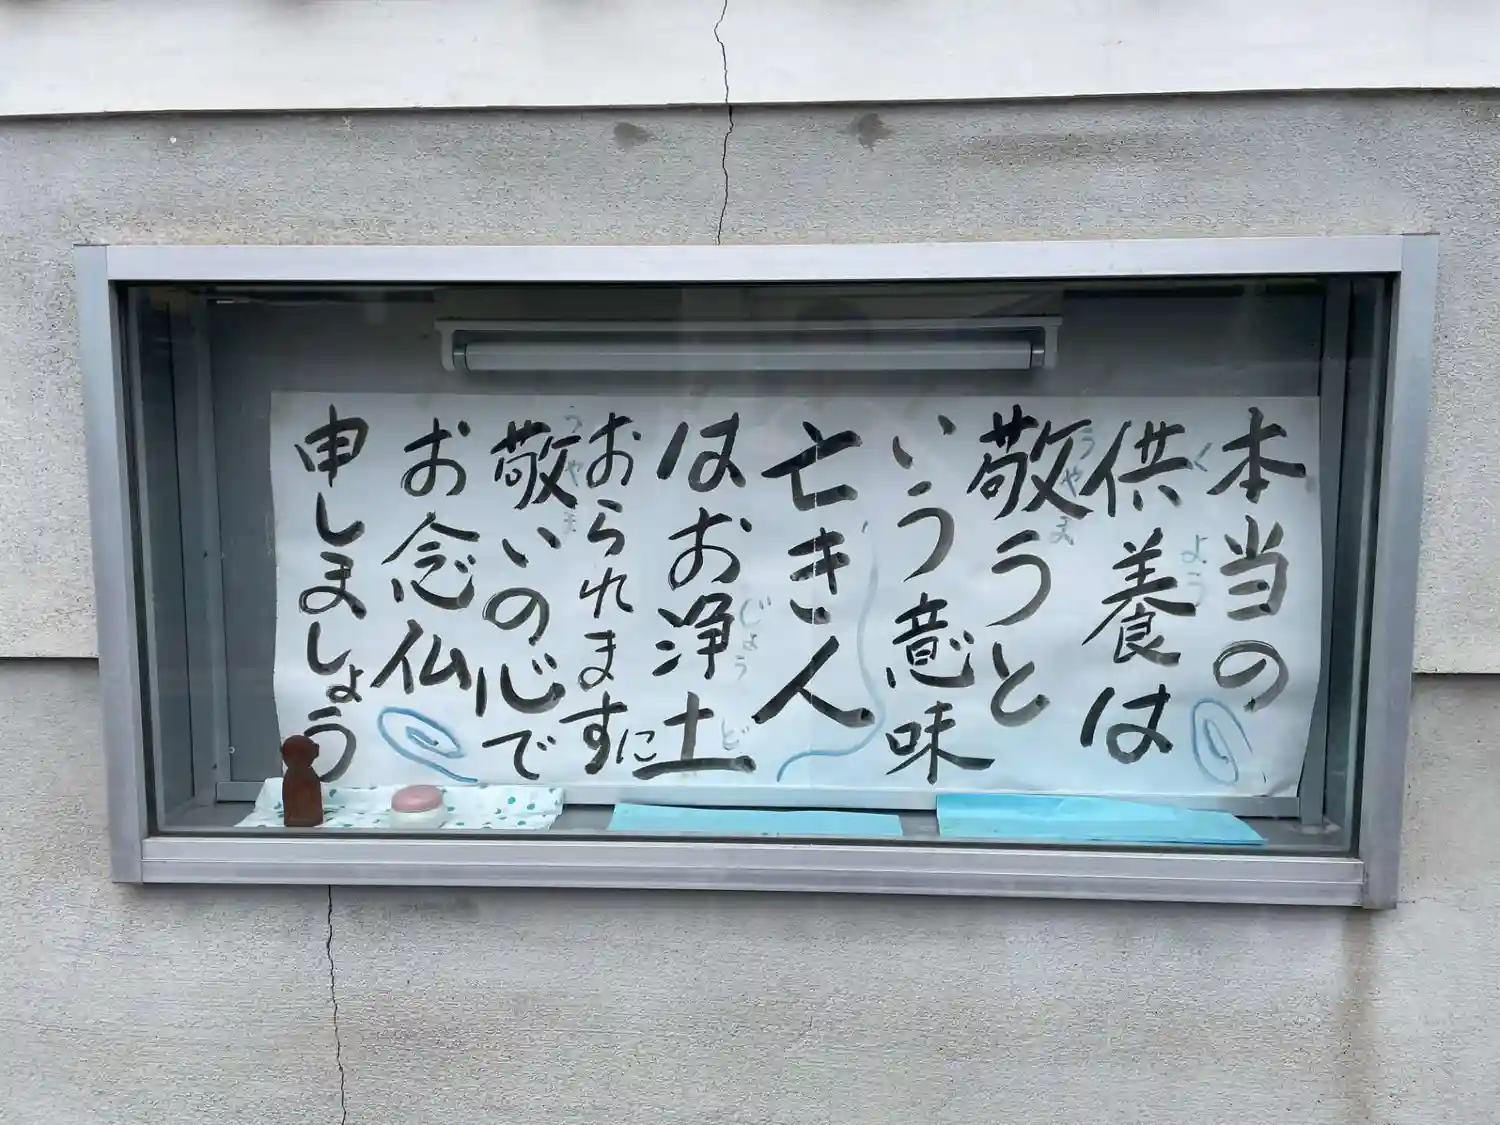 本当の
供養は
敬うと
いう意味
亡き人
はお浄土に
おられます
敬いの心で
お念仏
申しましょう
く
よう
うやま
じょう
ど
うやま